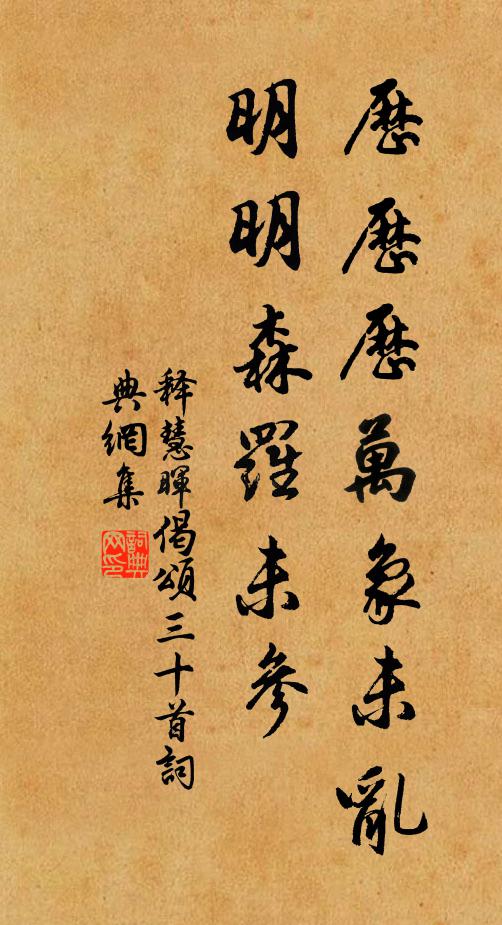 歷歷歷萬象未亂
明明森羅未參
释慧暉偈頌三十首詞
典網集
詞典网印